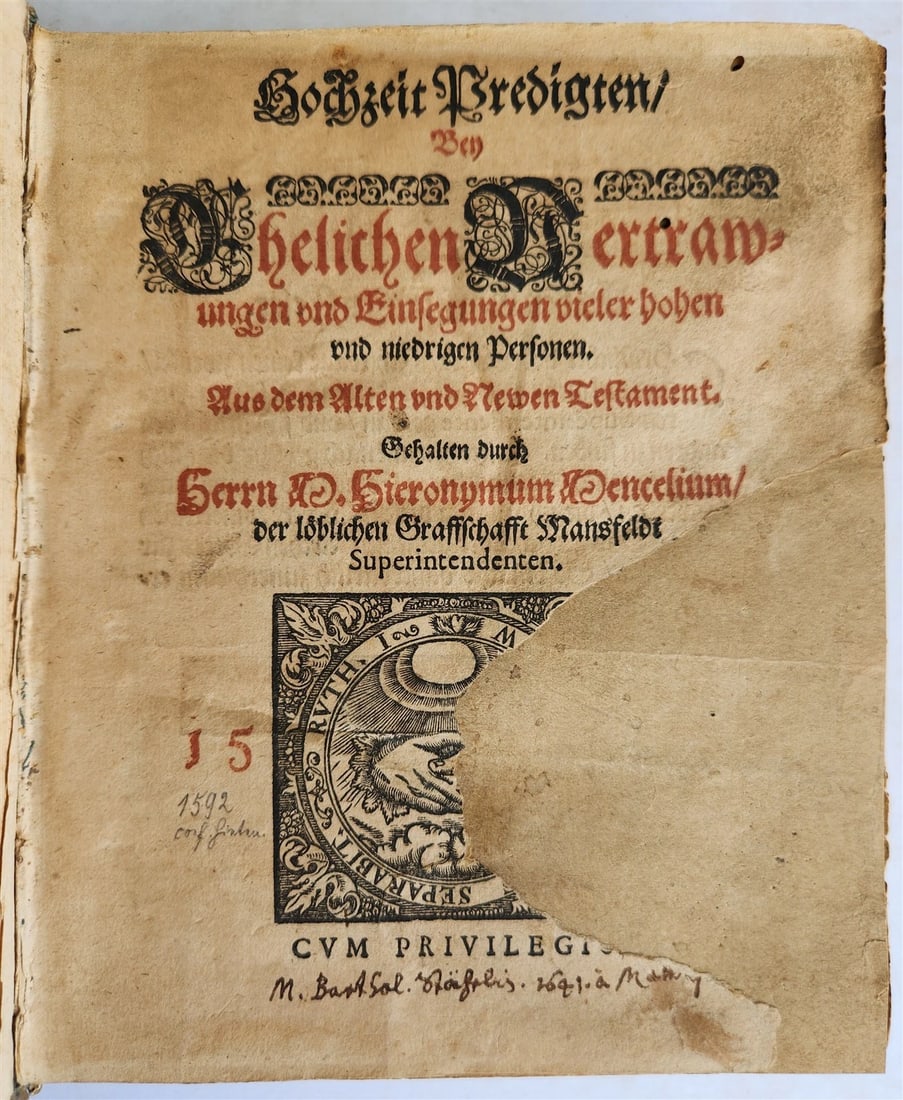 Hochzeit Predigten/
Bey
Ehelichen Vertraw-
ungen vnd Einsegungen vieler hohen
vnd niedrigen Personen.
Aus dem Alten vnd Newen Testament.
Gehalten durch
Herrn M. Hieronymum Mencelium/
der löblichen Graffschafft Mansfeldt
Superintendenten.
RVTH. I W
SEPARABIT.
15
1592
CVM PRIVILEGI
M. Barthol. 1641. a